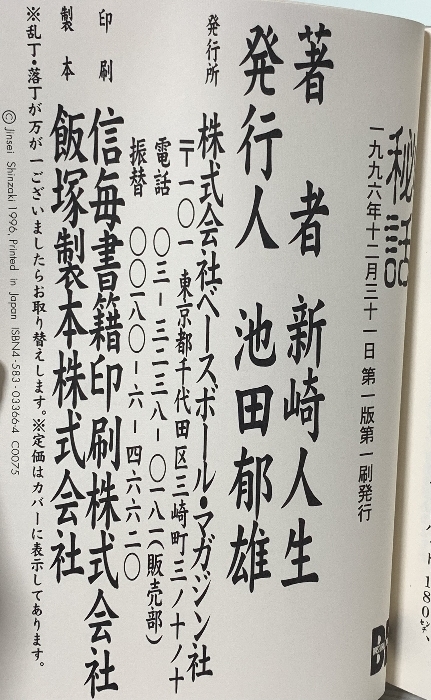 秘話
一九九六年十二月三十一日 第一版第一刷発行
著者 新崎人生
発行人 池田郁雄
発行所 株式会社ベースボール・マガジン社
〒一〇一 東京都千代田区三崎町三ノ十ノ十
電話 〇三-三二三八-〇一八一(販売部)
振替 〇〇一八〇-六-四六六二〇
印刷 信毎書籍印刷株式会社
製本 飯塚製本株式会社
※乱丁・落丁が万が一ございましたらお取り替えします。※定価はカバーに表示してあります。
© Jinsei Shinzaki 1996, Printed in Japan ISBN4-583-03366-4 C0075
180